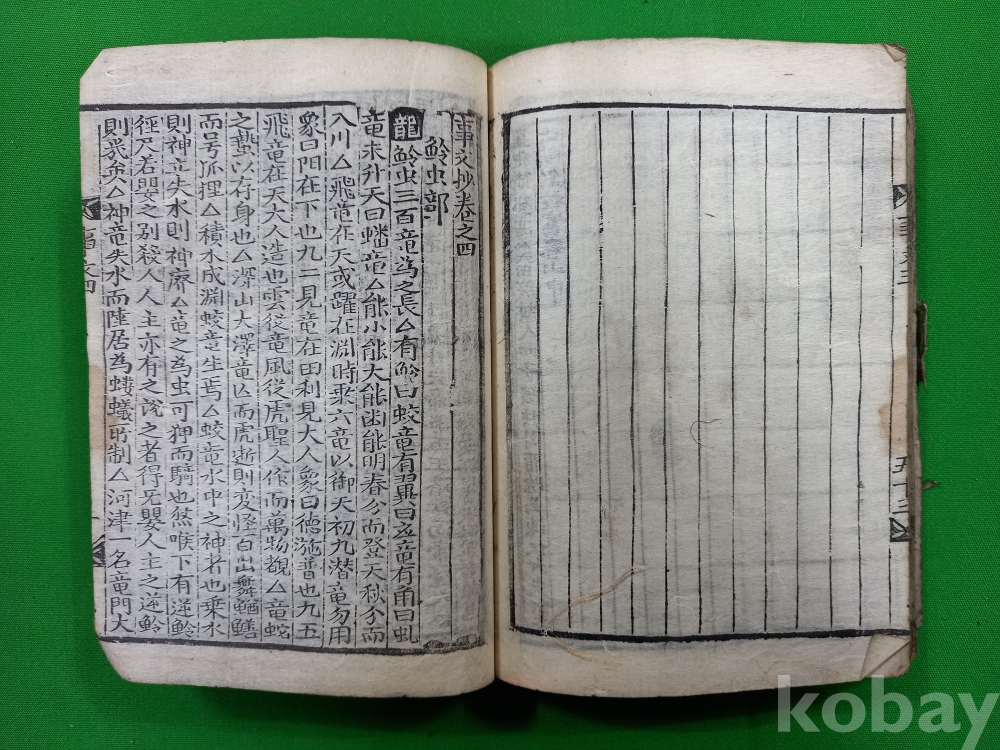 五十三
事文抄卷之四
魿虫部
龍魿虫三百竜為之長△有魿曰蛟竜有翼曰应竜有甬曰虬
竜未升天曰蟠竜△能小能大能幽能明春分而登天秋分而
入川△飛竜在天或躍在淵時乘六竜以御天初九潜竜勿用
象曰阳在下也九二見竜在田利見大人象曰德施普也九五
飛竜在天大人造也雲從竜風從虎聖人作而萬物覩△竜蛇
之蟄以存身也△深山大澤竜亡而虎逝則变怪百出舞鰌鱔
而号狐狸△積水成淵蛟竜生焉△蛟竜水中之神者也乗水
則神立失水則神廃△竜之為虫可狎而騎也然喉下有逆魿
徑尺若嬰之則殺人人主亦有之說之者得无嬰人主之逆魿
則幾矣△神竜失水而陸居為螻蟻所制△河津一名竜門大
事文四
一
kobay